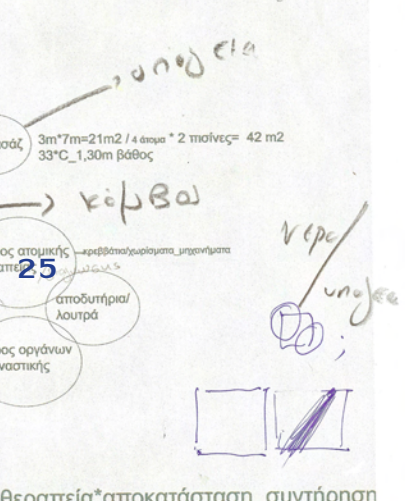 υπόγεια
σάζ
3m*7m=21m2 / 4 άτομα * 2 πισίνες= 42 m2
33*C_1,30m βάθος
κόμβος
ος ατομικής
κρεββάτια/χωρίσματα_μηχανήματα
25
νερο
υπόγεια
αποδυτήρια/
λουτρά
;
ος οργάνων
ναστικής
θεραπεία*αποκατάσταση συντήρηση